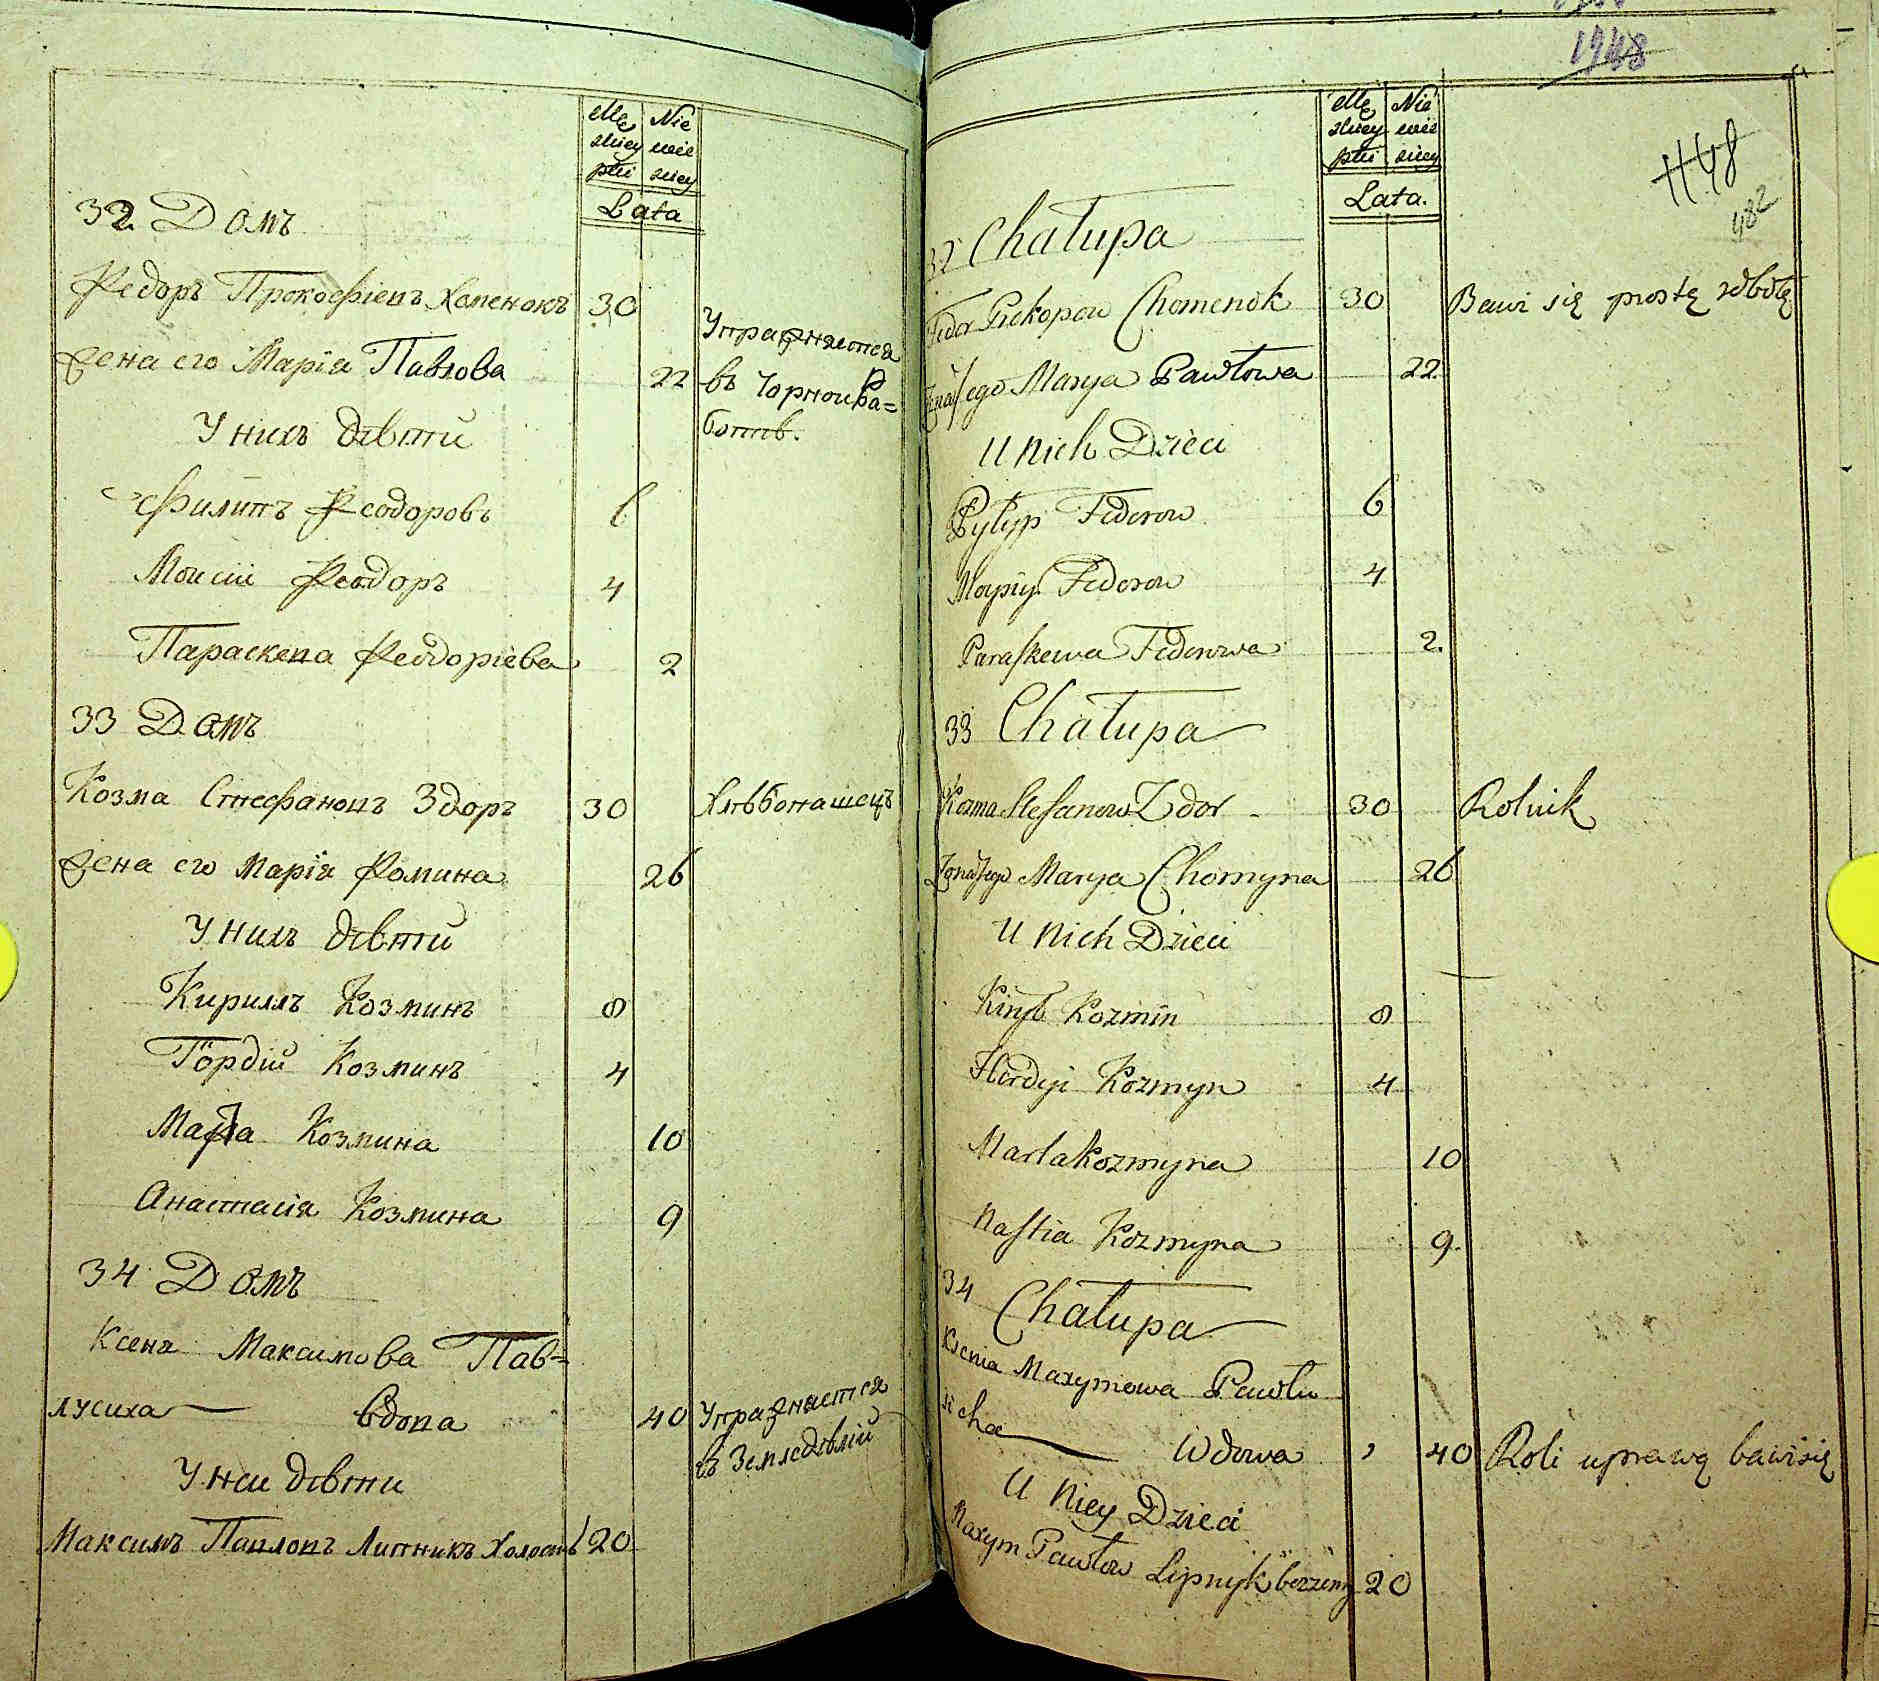 Mę Nie
zkiey wie
płci skiey
Lata
32 Домъ
Федоръ Прокофіевъ Хоменокъ 30
Жена его Марія Павлова 22
Упражняется
въ чорной ра=
ботѣ.
У нихъ дѣти
Филипъ Феодоровъ 6
Моисій Феодоръ 4
Параскева Феодоріева 2
33 Домъ
Козма Стефановъ Здоръ 30 Хлѣбопашецъ
Жена его Марія Фомина 26
У нихъ дѣти
Кириллъ Козминъ 8
Гордій Козминъ 4
Марѳа Козмина 10
Анастасія Козмина 9
34 Домъ
Ксенія Максимова Пав=
лусиха вдова 40 Упражнается
въ Земледѣлій
У неи дѣти
Максимъ Павловъ Липникъ Холостъ 20
1948
Mę Nie
zkiey wie
płci skiey
Lata.
1148
482
32 Chałupa
Fedor Prokopow Chomenok 30 Bawi się prostą robotą
Żona jego Marya Pawłowa 22
U Nich Dzieci
Pyłyp Fedorow 6
Moysiy Fedorow 4
Paraskewa Fedorowa 2.
33 Chałupa
Kozma Stefanow Zdor 30 Rolnik
Żona jego Marya Chomyna 26
U Nich Dzieci
Kirył Kozmin 8
Hordyi Kozmyn 4
Marta Kozmyna 10
Nastia Kozmyna 9.
34 Chałupa
Ksenia Maxymowa Pawłu
sicha Wdowa 40 Roli uprawą bawi się
U Niey Dzieci
Maxym Pawłow Lipnyk bezżenny 20